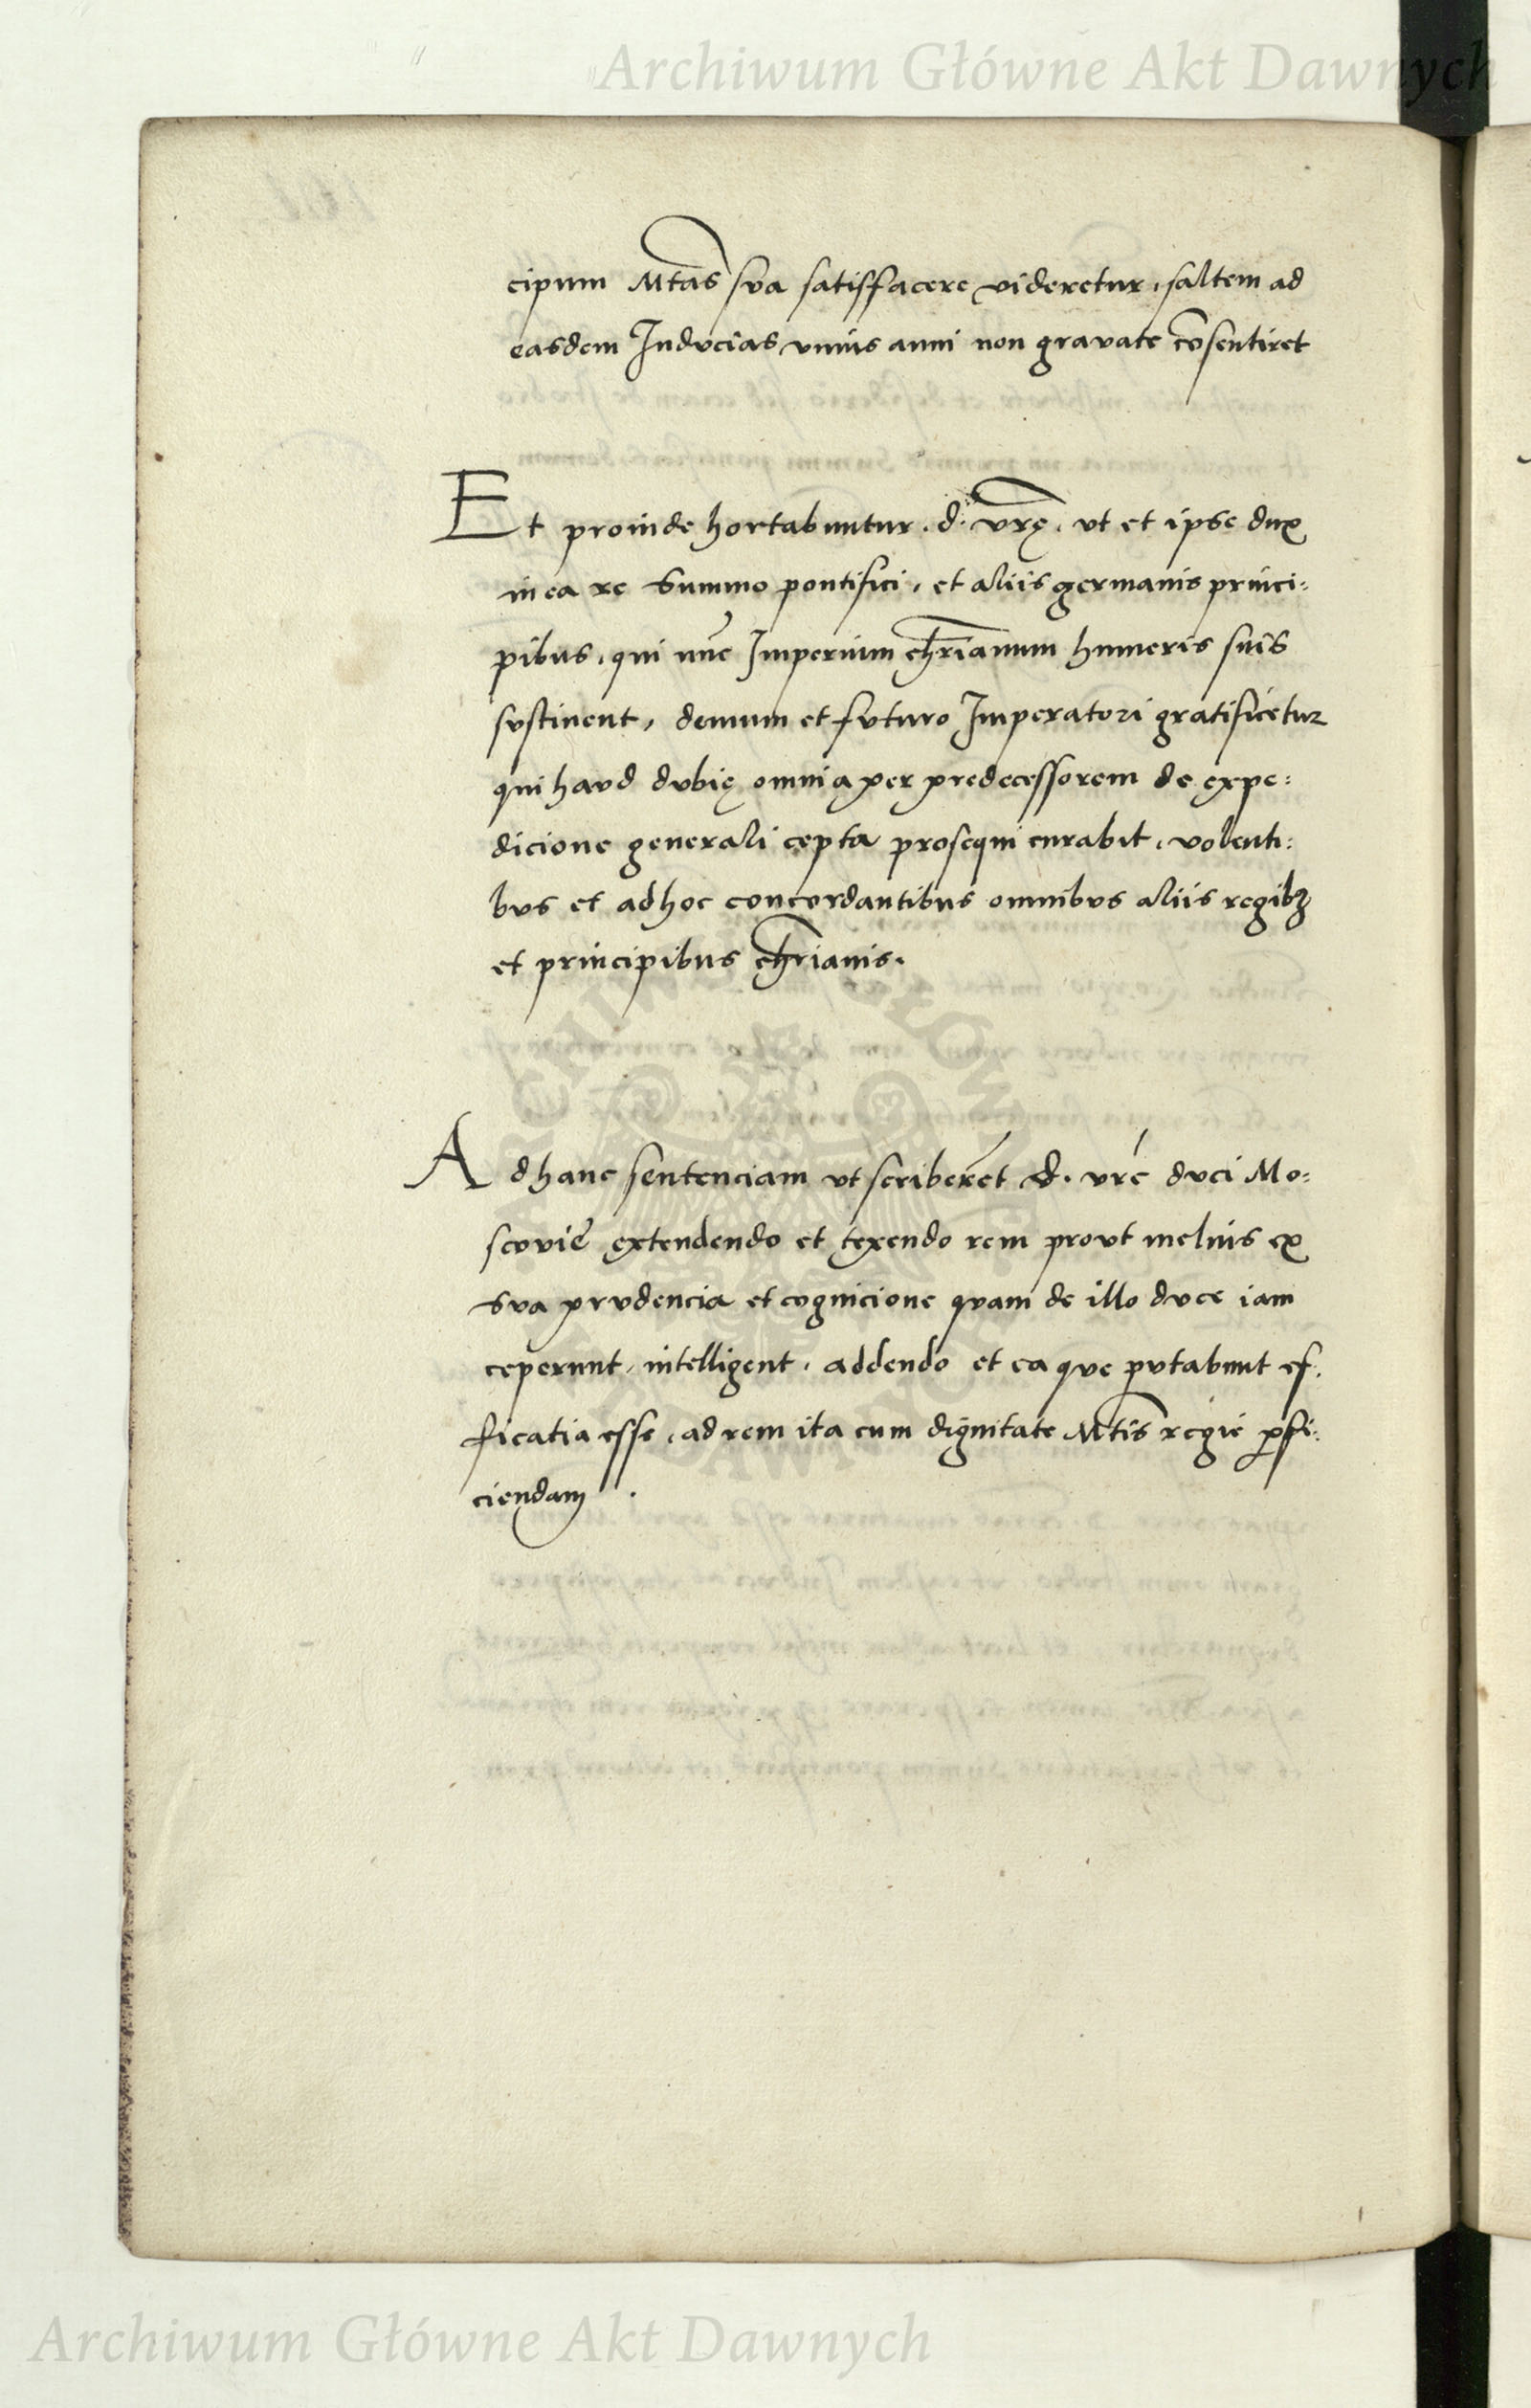 Archiwum Główne Akt Dawnych
cipum Mtas sva satisfacere videretur, saltem ad
easdem Inducias unius anni non gravate cōsentiret
Et proinde hortabuntur. d: vrę. vt et ipse dux
in ea re summo pontifici, et aliis germanis princi:
pibus, qui nūc Imperium chrianum humeris suis
svstinent, demum et fvturo Imperatori gratificetur
qui havd dvbię omnia per predecessorem de expe:
dicione generali cepta prosequi curabit, volenti:
bvs et ad hoc concordantibus omnibvs aliis regibꝫ
et principibus chrianis.
Ad hanc sentenciam vt scriberēt d. vrē dvci Mo:
scovie extendendo et texendo rem provt melius ex
sva prvdencia et cognicione qvam de illo dvce iam
ceperunt, intelligent, addendo et ea qve pvtabunt ef:
ficatia esse, ad rem ita cum dignitate Mtis regie ꝑfi:
ciendam.
Archiwum Główne Akt Dawnych